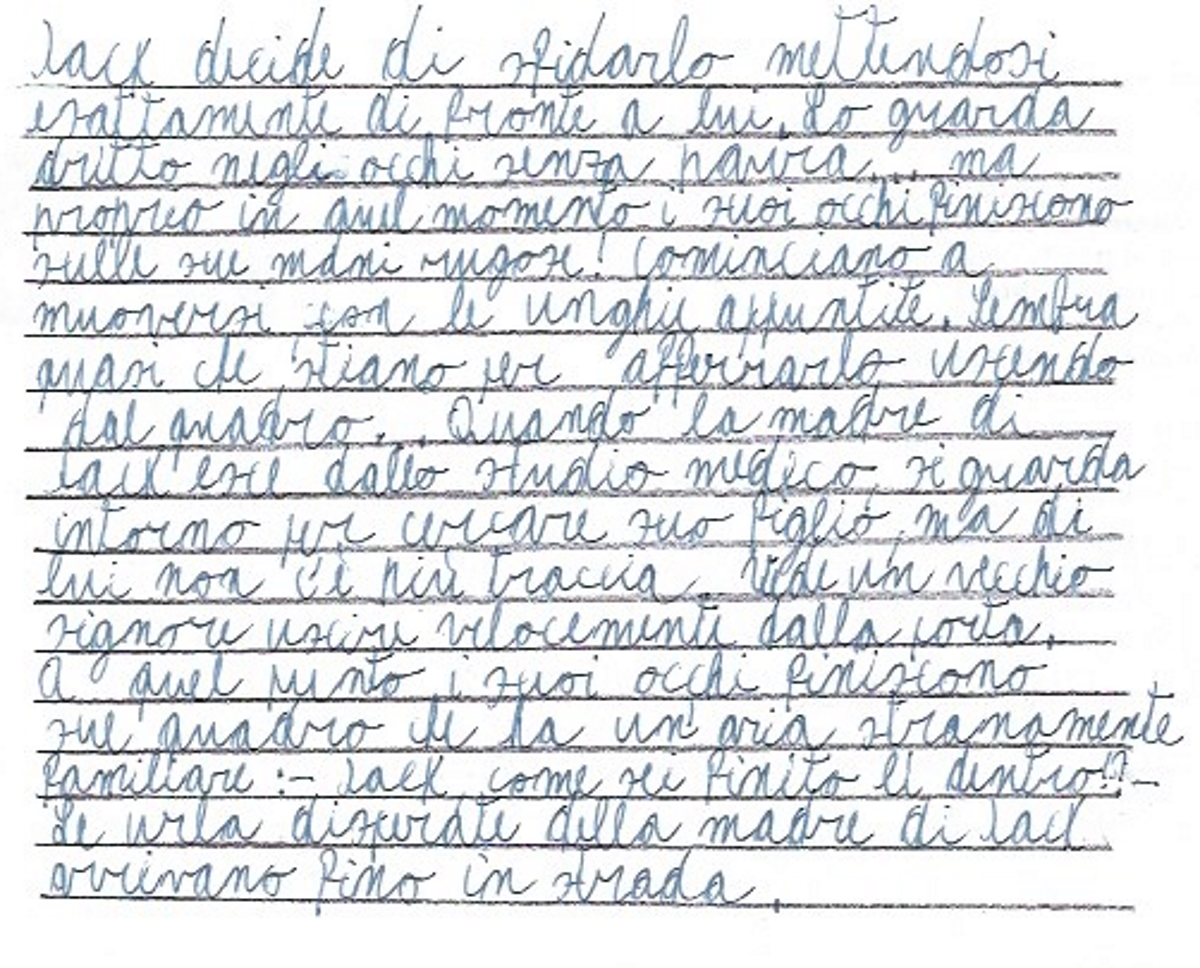 Jack decide di sfidarlo mettendosi
esattamente di fronte a lui. Lo guarda
dritto negli occhi senza paura... ma
proprio in quel momento i suoi occhi finiscono
sulle sue mani rugose! Cominciano a
muoversi con le unghie appuntite. Sembra
quasi che stiano per afferrarlo uscendo
dal quadro... Quando la madre di
Jack esce dallo studio medico si guarda
intorno per cercare suo figlio, ma di
lui non c'è più traccia. Vede un vecchio
signore uscire velocemente dalla porta.
A quel punto i suoi occhi finiscono
sul quadro che ha un'aria stranamente
familiare :- Jack come sei finito lì dentro!?-
Le urla disperate della madre di Jack
arrivano fino in strada.